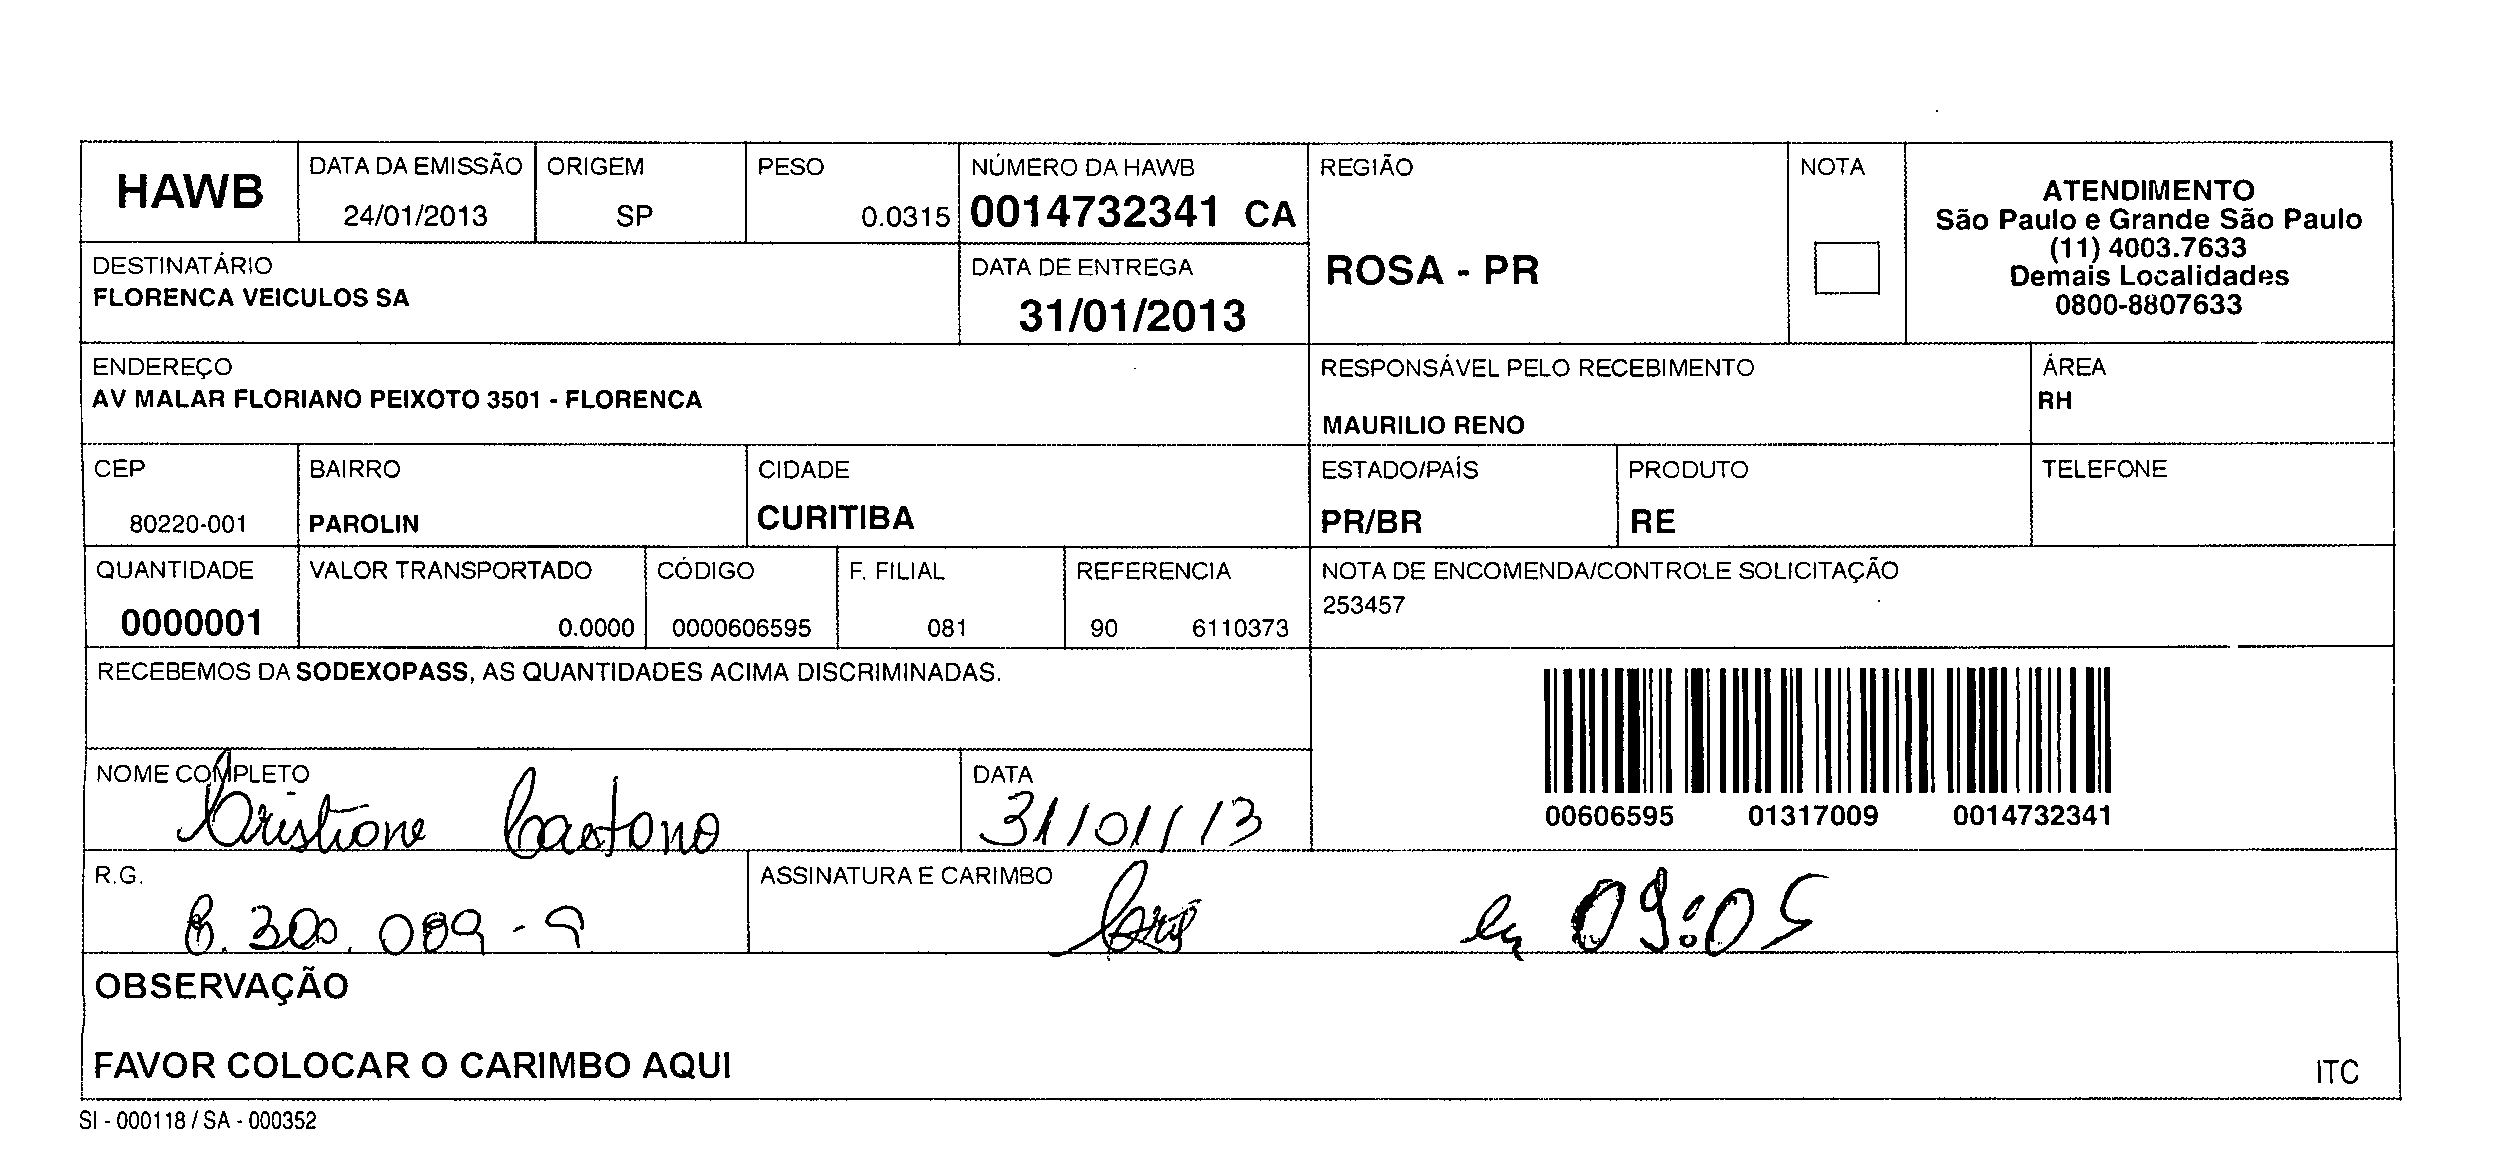 HAWB
DATA DA EMISSÃO
24/01/2013
ORIGEM
SP
PESO
0.0315
NÚMERO DA HAWB
0014732341 CA
REGIÃO
ROSA - PR
NOTA
ATENDIMENTO
São Paulo e Grande São Paulo
(11) 4003.7633
Demais Localidades
0800-8807633
DESTINATÁRIO
FLORENCA VEICULOS SA
DATA DE ENTREGA
31/01/2013
ENDEREÇO
AV MALAR FLORIANO PEIXOTO 3501 - FLORENCA
RESPONSÁVEL PELO RECEBIMENTO
MAURILIO RENO
ÁREA
RH
CEP
80220-001
BAIRRO
PAROLIN
CIDADE
CURITIBA
ESTADO/PAÍS
PR/BR
PRODUTO
RE
TELEFONE
QUANTIDADE
0000001
VALOR TRANSPORTADO
0.0000
CÓDIGO
0000606595
F. FILIAL
081
REFERENCIA
90 6110373
NOTA DE ENCOMENDA/CONTROLE SOLICITAÇÃO
253457
RECEBEMOS DA SODEXOPASS, AS QUANTIDADES ACIMA DISCRIMINADAS.
00606595 01317009 0014732341
NOME COMPLETO
Cristiane Caetano
DATA
31/01/13
R.G.
8.300.089-9
ASSINATURA E CARIMBO
09:05
OBSERVAÇÃO
FAVOR COLOCAR O CARIMBO AQUI
ITC
SI - 000118 / SA - 000352